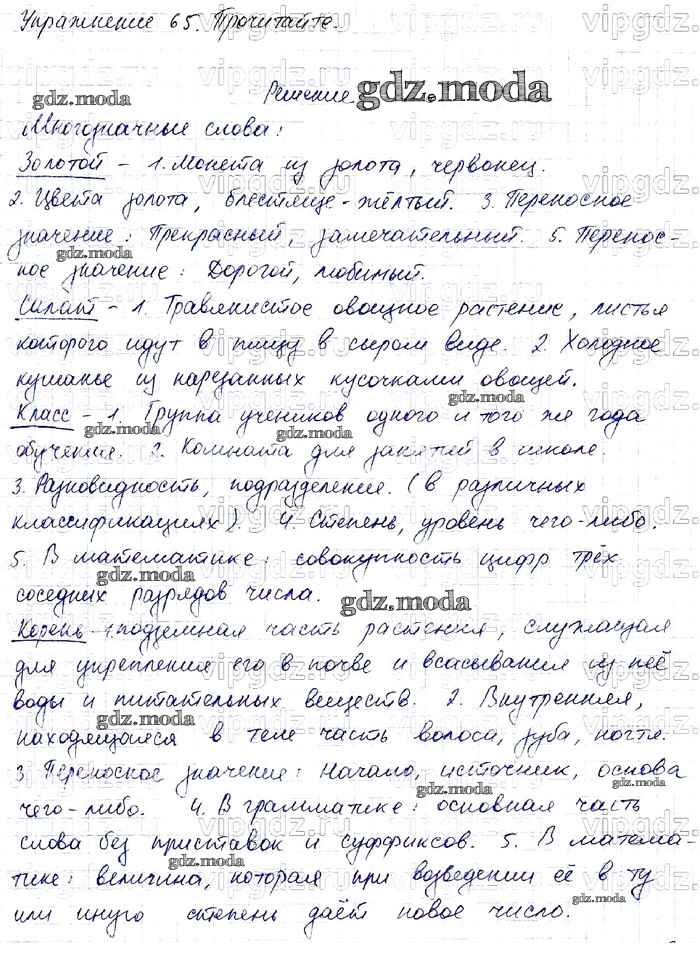 Упражнение 65. Прочитайте.
Решение gdz.moda
gdz.moda
Многозначные слова:
Золотой - 1. Монета из золота, червонец.
2. Цвета золота, блестяще-жёлтый. 3. Переносное
значение: Прекрасный, замечательный. 5. Перенос-
gdz.moda
ное значение: Дорогой, любимый.
Салат - 1. Травянистое овощное растение, листья
которого идут в пищу в сыром виде. 2. Холодное
gdz.moda gdz.moda
кушанье из нарезанных кусочками овощей.
Класс - 1. Группа учеников одного и того же года
gdz.moda gdz.moda
обучения. 2. Комната для занятий в школе.
3. Разновидность, подразделение. (в различных
классификациях). 4. Степень, уровень чего-либо.
5. В математике: совокупность цифр трёх
gdz.moda
соседних разрядов числа.
gdz.moda
Корень - 1. подземная часть растения, служащая
для укрепления его в почве и всасывания из неё
воды и питательных веществ. 2. Внутренняя,
gdz.moda
находящаяся в теле часть волоса, зуба, ногтя.
3. Переносное значение: Начало, источник, основа
gdz.moda
чего-либо. 4. В грамматике: основная часть
слова без приставок и суффиксов. 5. В матема-
gdz.moda
тике: величина, которая при возведении её в ту
или иную степень даёт новое число.
gdz.moda